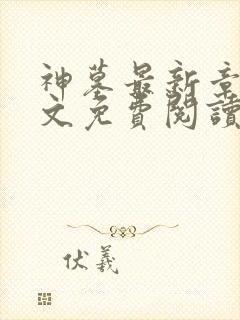 神墓最新章
文免費閱讀
伏羲